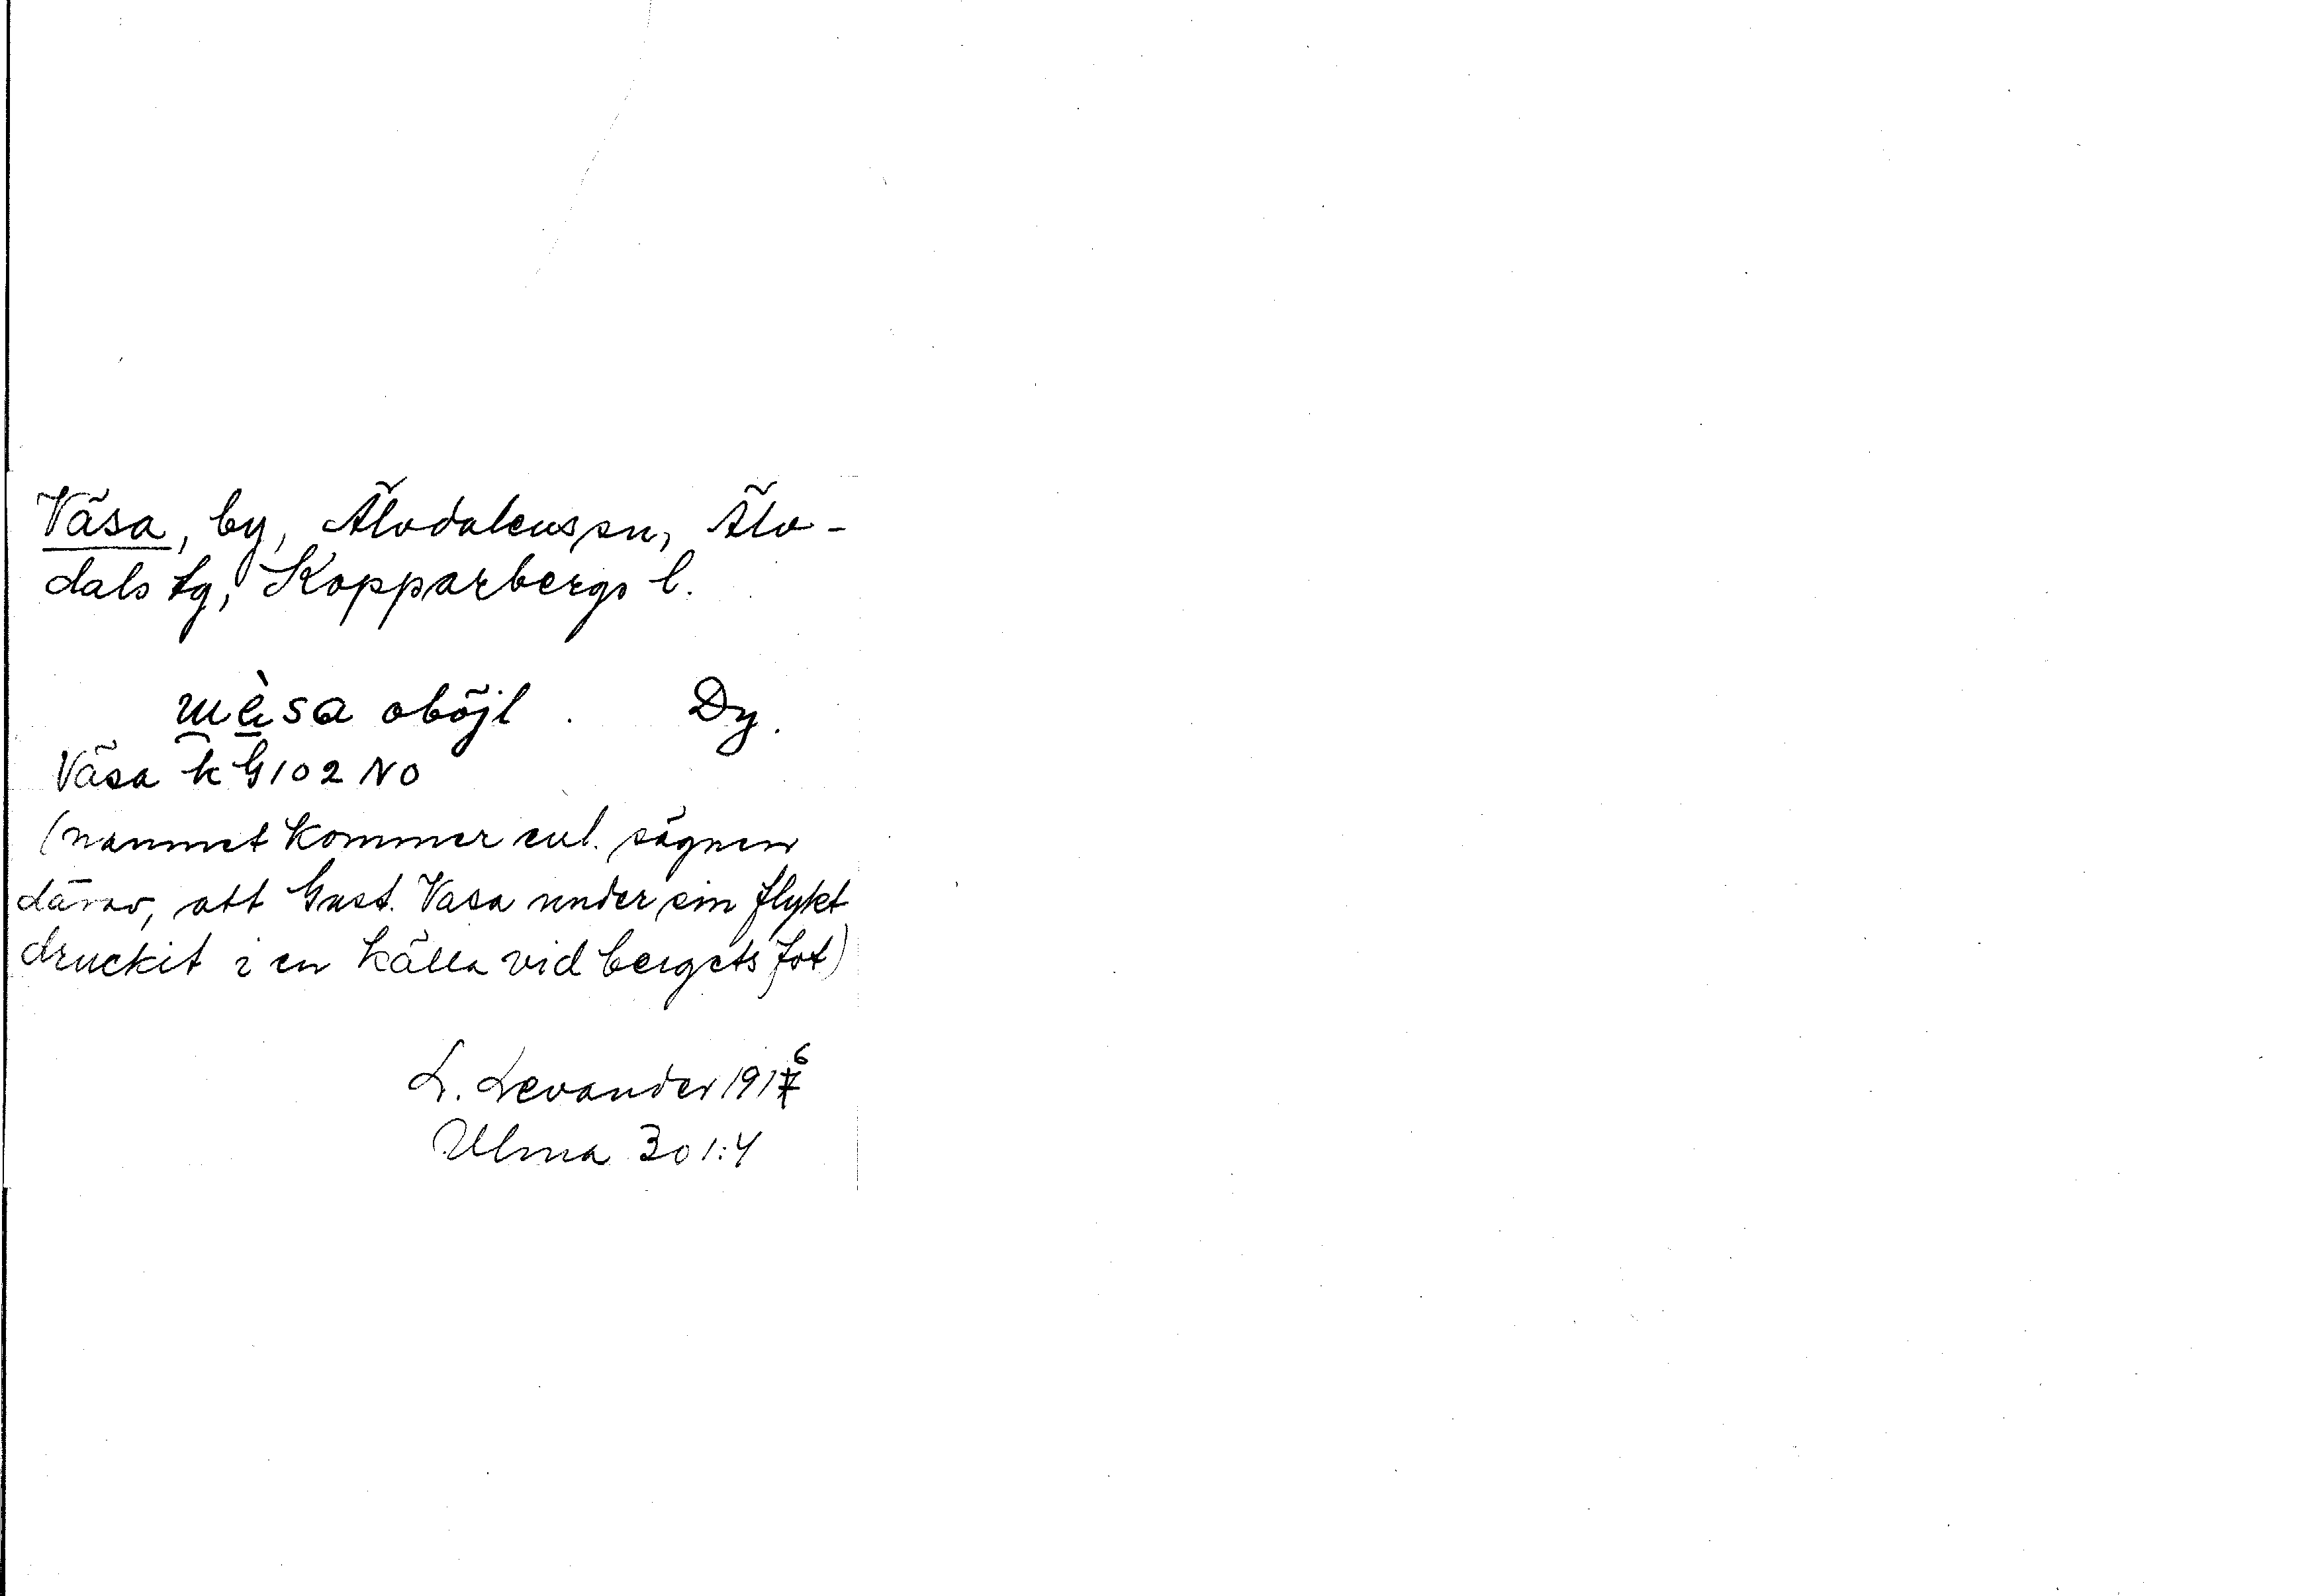 Väsa, by, Älvdalens sn, Älv-
dals tg, Kopparbergs l.
wèsa oböjl. Dy.
Väsa k G 102 NO
(namnet kommer enl. sägnen
därav, att Gust. Vasa under sin flykt
druckit i en källa vid bergets fot)
L. Levander 1916
Ulma 301:4